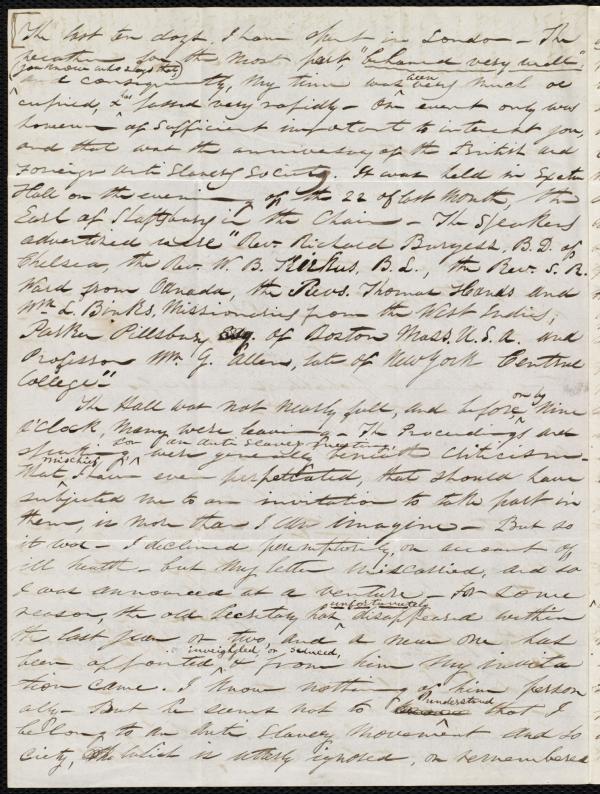 [The last ten days I have spent in London – The
weather for the most part, "behaved very well"
(you know who says that,)
and consequently, my time was even very much oc
cupied, & has passed very rapidly – One event only was
however of sufficient important to interest you,
and that was the anniversary of the British and
Foreign Anti Slavery Society. It was held in Exeter
Hall on the evening of the 22 of last Month, the
Earl of Shaftsbury in the Chair – The Speakers
advertised were "Rev. Richard Burgess, B.D. of
Chelsea, the Rev. W. B. Kirkus, B.L., the Rev. S. R.
Ward from Canada, the Revs. Thomas Hands and
Wm. L. Binks, Missionaries from the West Indies;
Parker Pillsbury Esq. of Boston Mass. U.S.A. and
Professor Wm. G. Allen, late of New York Central
College."
The Hall was not nearly full, and before, or by nine
o'clock, many were leaving – The Proceedings and
speaking for an Anti Slavery meeting were generally beneath criticism –
What mischief I have ever perpetrated, that should have
subjected me to an invitation to take part in
them, is more than I can imagine – But so
it was – I declined peremptorily, on account of
ill health – but my letter miscarried, and so
I was announced at a venture – For some
reason, the old Secretary has unfortunately disappeared within
the last year or two, and a new one has
been appointed & from him my invita
inveighled or seduced,
tion came. I know nothing of him person
ally – But he seems not to understand that I
belong to an Anti Slavery Movement and so
ciety, which is utterly ignored, or remembered